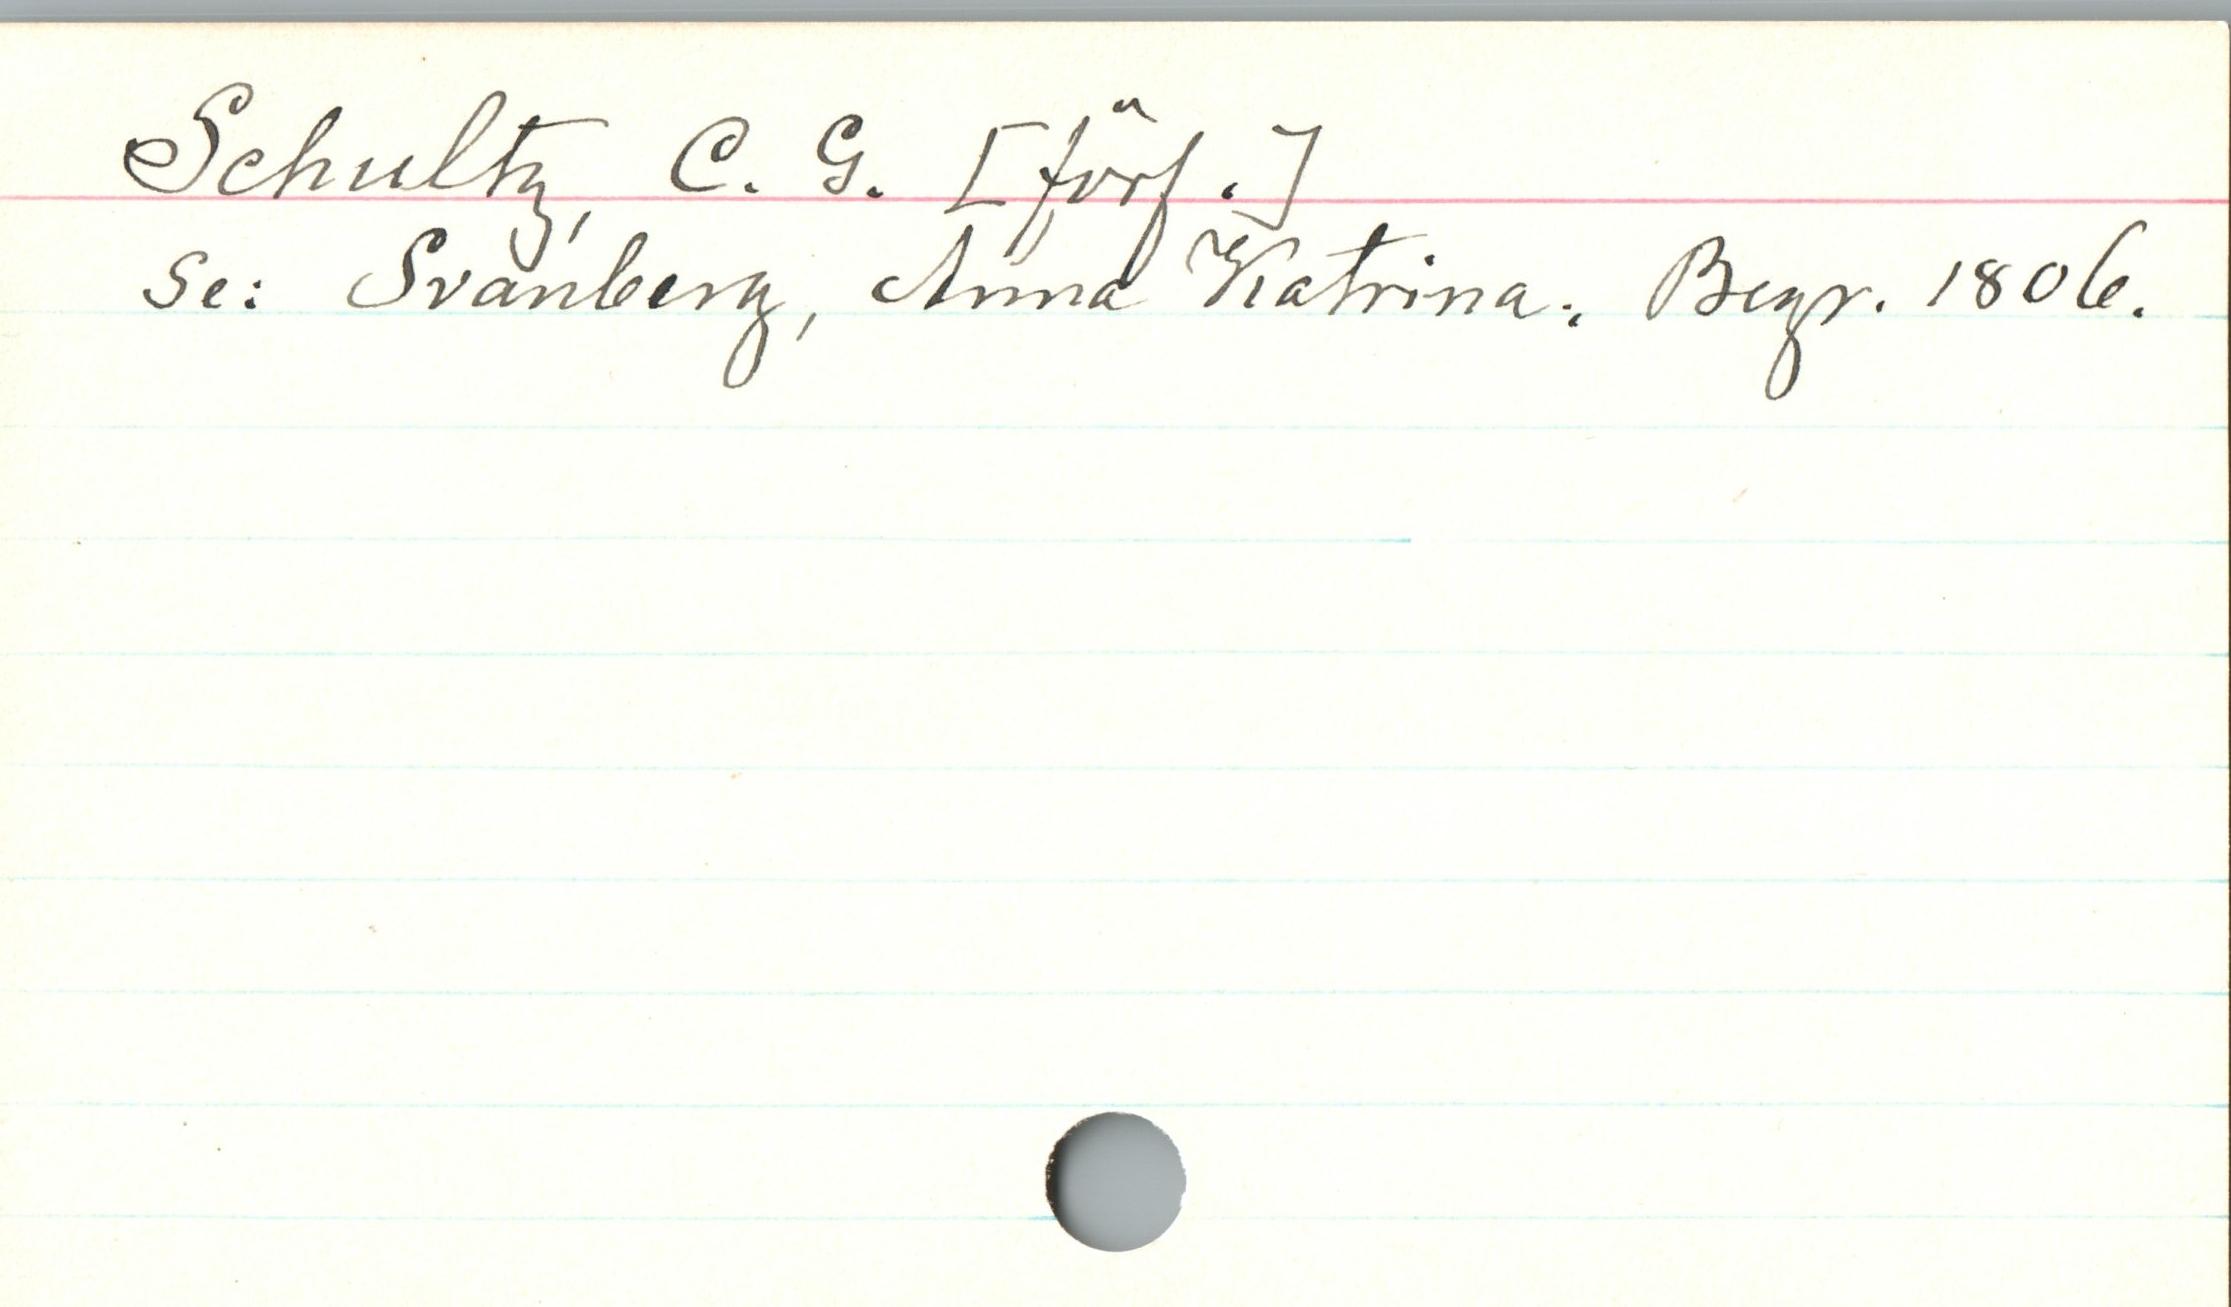 Schultz, C. G. [förf.]
se: Svanberg, Anna Katrina. Begr. 1806.